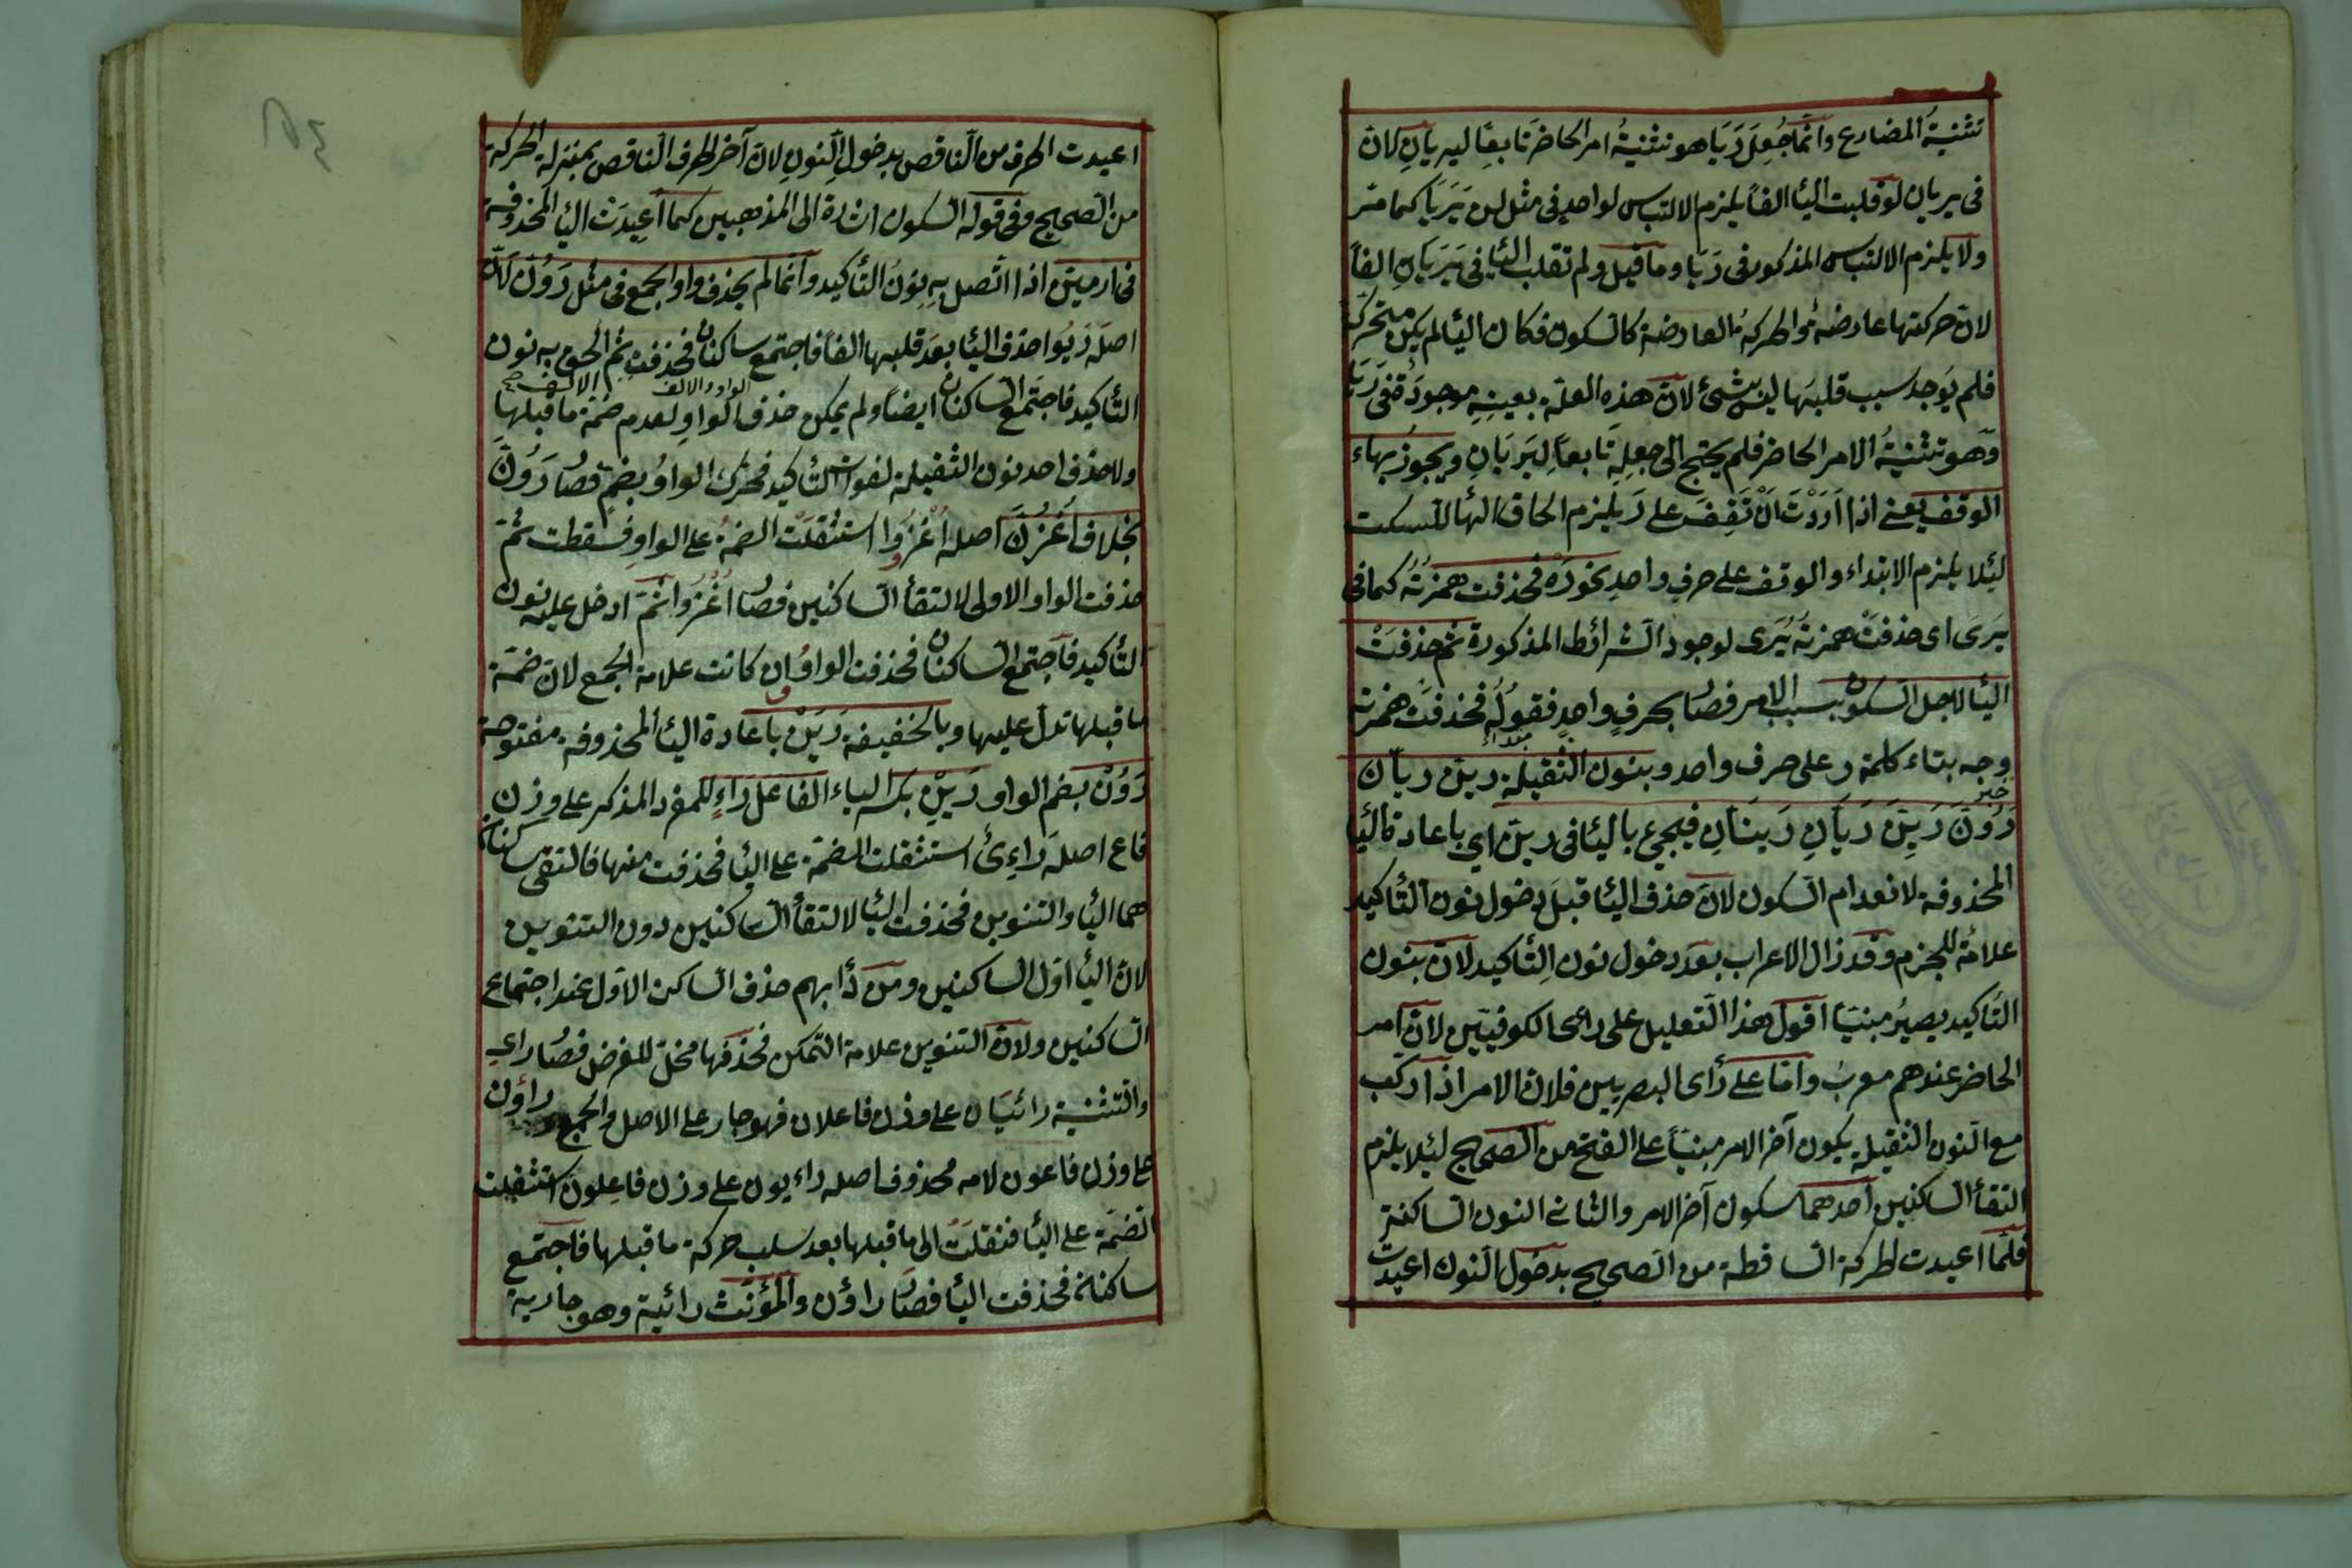 تثنية المضارع وانّما جُعِلَ رَيَا هو تثنيةُ امر الحاضر تابعًا ليريانِ لانّ
فى يريان لو قلبت الئا الفًا يلزم الالتباس لواحدٍ فى مثل لن يَرَيَا كما مرّ
ولا يلزم الالتباس المذكور فى رَيَا وما قيل ولم تقلب الئا فى يَرَيَانِ الفًا
لانّ حركتها عارضةٌ والحركةُ العارضة كالسكون فكان الئا لم يكن متحركة
فلم يَوجد سبب قلبَها ليس بشئٍ لانّ هذه العلّة بعينِهِ موجودَةٌ فى رَيَا
وهو تثنيةُ الامر الحاضر فلم يحتج الى جعلِهِ تابعاً لِيَرَيَانِ ويجوزُ بهاء
الوقف يعنى اذا اَرَدْتَ اَنْ تَقِفَ على رَ يلزم الحاق الهٔا للسكت
لئلا يلزم الابتداء والوقف على حرفٍ واحدٍ نحو رَهْ فحذفت همزتُه كما فى
يَرَى اى حذفتْ همزتَه يَرَى لوجود الشرائط المذكورة ثم حذفَتْ
الئا لاجل السكون بسبب الامر فصٔار بحرفٍ واحدٍ فقوله فحذفت همزته مبتداء
وجه بتاء كلمة ر على حرف واحد وبنون الثقيلة رينّ ريانّ
خبر
رَوُنَّ رَيِنَّ رَيَانِّ رَيْنَانِّ فيجىء بالئا فى رينّ اي باعادة الئا
المحذوفة لانعدام السكون لانّ حذف الئا قبلَ دخول نون التٔاكيد
علامةٌ للجزم وقد زال الاعراب بعدَ دخول نون التٔاكيد لانّ بنون
التٔاكيد يصيرُ مبنيًّا اقول هذا التعليل على رأى الكوفيّين لانّ امر
الحاضر عندهم معربٌ وامّا على رأى البصريين فلانّ الامر اذا ركّب
مع النون الثقيلة يكون آخر الامر مبنيًّا على الفتح من الصحيح لئلا يلزم
التقٔا الساكنين احدهما سكون آخر الامر والثانى النون الساكنة
فلمّا اعيدت الحركة الساقطة من الصحيح بدخول النون اعيدت
اعيدت الحرف من الناقص بدخول النون لانّ آخر الحرف الناقص بمنزلة الحركة
من الصحيح وفى قوله السكون اشارة الى المذهبين كما اُعِيدَتْ الئا المحذوفة
فى ارمينّ اذا اتّصل بِهِ نونُ التٔاكيد وانّما لم يحذف واو الجمع فى مثل رَوُنَّ لانّ
اصلَه رَيُوا حذف الئا بعدَ قلبها الفًا فاجتمع ساكنان فحذفت ثم الحق به نون
الواو والالف الالف صح
التّٔاكيد فاجتَمع الساكنان ايضًا ولم يمكن حذف الواو لعدم ضمّة ما قبلها
ولا حذف احد نون الثقيلة لفوات التٔاكيد فحرّك الواوُ بضمٍ فصٔار رَوُنَّ
بخلاف اُغْزُنَّ اصله اُغْزُوُوا استثقلت الضمةُ على الواوِ فسقطت ثمّ
حذفت الواو الاولى لالتقٔا الساكنين فصٔار اُغْزُوا ثمّ ادخل عليه نون
التٔاكيد فاجتمع الساكنان فحذفت الواو وان كانت علامة الجمع لانّ ضمّة
ما قبلها تدلّ عليها وبالخفيفة رَيَنْ باعادة الئا المحذوفة مفتوحة
رَوُنْ بضم الواو رَيِنْ بكسر الياء الفاعل رَاءٍ للمفرد المذكر على وزن
فاع اصله رَاءِىٌ استثقلت الضمّة على الئا فحذفت منها فالتقى ساكنان
هما الئا والتنوين فحذفت الئا لالتقٔا الساكنين دون التنوين
لانّ الئا اوّل الساكنين ومن دأبهم حذف الساكن الاوّل عند اجتماع
الساكنين ولانّ التنوين علامة التمكن فحذفها مخلّ للغرض فصٔار راءٍ
والتثنية رائيَان على وزن فاعلان فهو جار على الاصل والجمع راؤن
على وزن فاعون لامه محذوف اصله راءيون على وزن فاعِلون استثقلت
الضمّة على الئا فنقلَتْ الى ما قبلها بعد سلب حركة ما قبلها فاجتمع
ساكنان فحذفت الئا فصٔار راؤن والمؤنث رائية وهو جارية